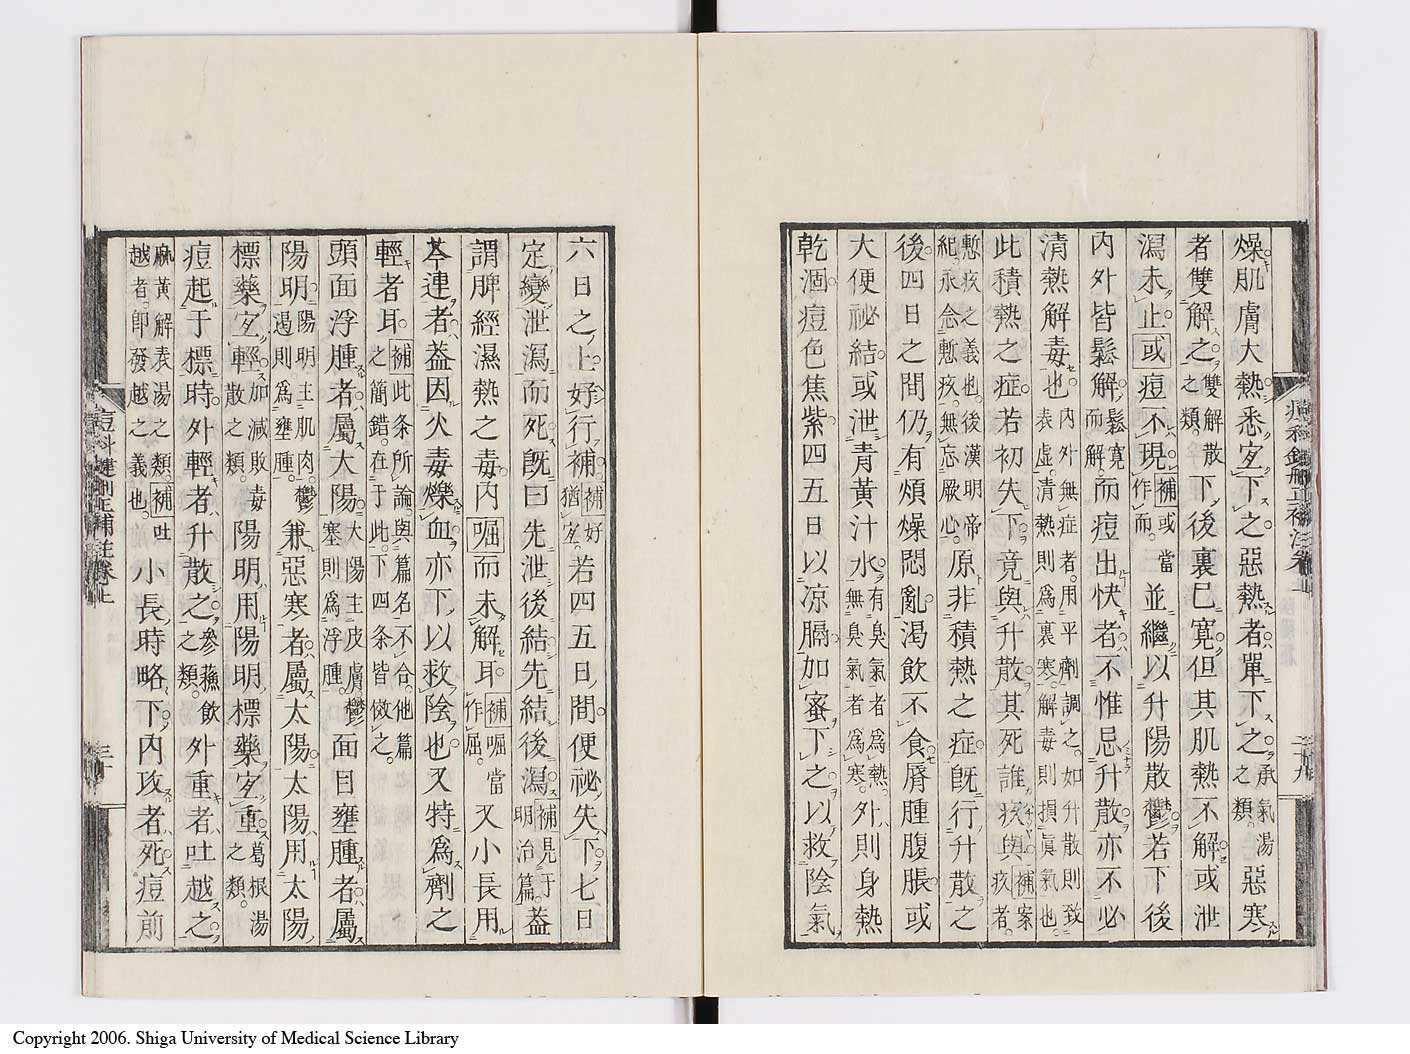 燥肌膚大熱悉宜下之惡熱者單下之承氣湯之類惡寒
者雙解之雙解散之類下後裏已寛但其肌熱不解或泄
瀉未止或痘不現補或當作而三並繼以升陽散鬱若下後
内外皆鬆解鬆寛而解而痘出快者不惟忌升散亦不必
清熱解毒也内外無症者用平劑調之如升散則致表虚清熱則為裏寒解毒則損眞氣也
此積熱之症若初失下竟與升散其死誰疚與補案疚者
慙疚之義也後漢明帝紀永念慙疚無忘厥心原非積熱之症既行升散之
後四日之間仍有煩燥悶亂渇飲不食脣腫腹脹或
大便祕結或泄青黄汁水有臭氣者為熱無臭氣者為寒外則身熱
乾涸痘色焦紫四五日以凉膈加蜜下之以救陰氣
六日之上好行補補好猶宜若四五日間便祕失下七日
定變泄瀉而死既曰先泄後結先結後瀉補見于明治篇葢
謂脾經濕熱之毒内啒而未解耳補啒當作屈又小長用
芩連者葢因火毒爍血亦下以救陰也又特為劑之
輕者耳補此条所論與篇名不合他篇之簡錯在于此下四条皆倣之
頭面浮腫者屬大陽大陽主皮膚鬱塞則為浮腫面目壅腫者屬
陽明陽明主肌肉鬱遏則為壅腫兼惡寒者屬太陽太陽用太陽
標藥宜輕加減敗毒散之類陽明用陽明標藥宜重葛根湯之類
痘起于標時外輕者升散之參蘓飲之類外重者吐越之
麻黄解表湯之類補吐越者即發越之義也小長時略下内攻者死痘前
痘科鍵刪正補註卷上
三十